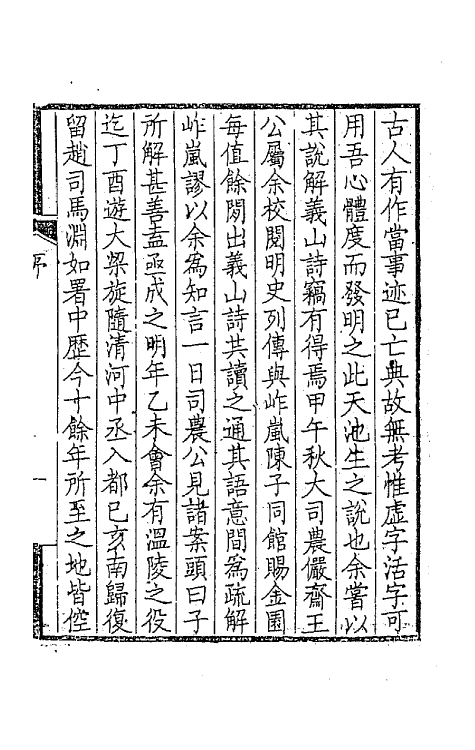 古人有作當事迹已亡典故無考惟虛字活字可
用吾心體度而發明之此天池生之說也余嘗以
其說解義山詩竊有得焉甲午秋大司農儼齋王
公屬余校閱明史列傳與岞嵐陳子同館賜金園
每值餘閒出義山詩共讀之通其語意間爲疏解
岞嵐謬以余爲知言一日司農公見諸案頭曰子
所解甚善盍亟成之明年乙未會余有溫陵之役
迄丁酉遊大梁旋隨清河中丞入都已亥南歸復
留趙司馬淵如署中歷今十餘年所至之地皆倥
序
一